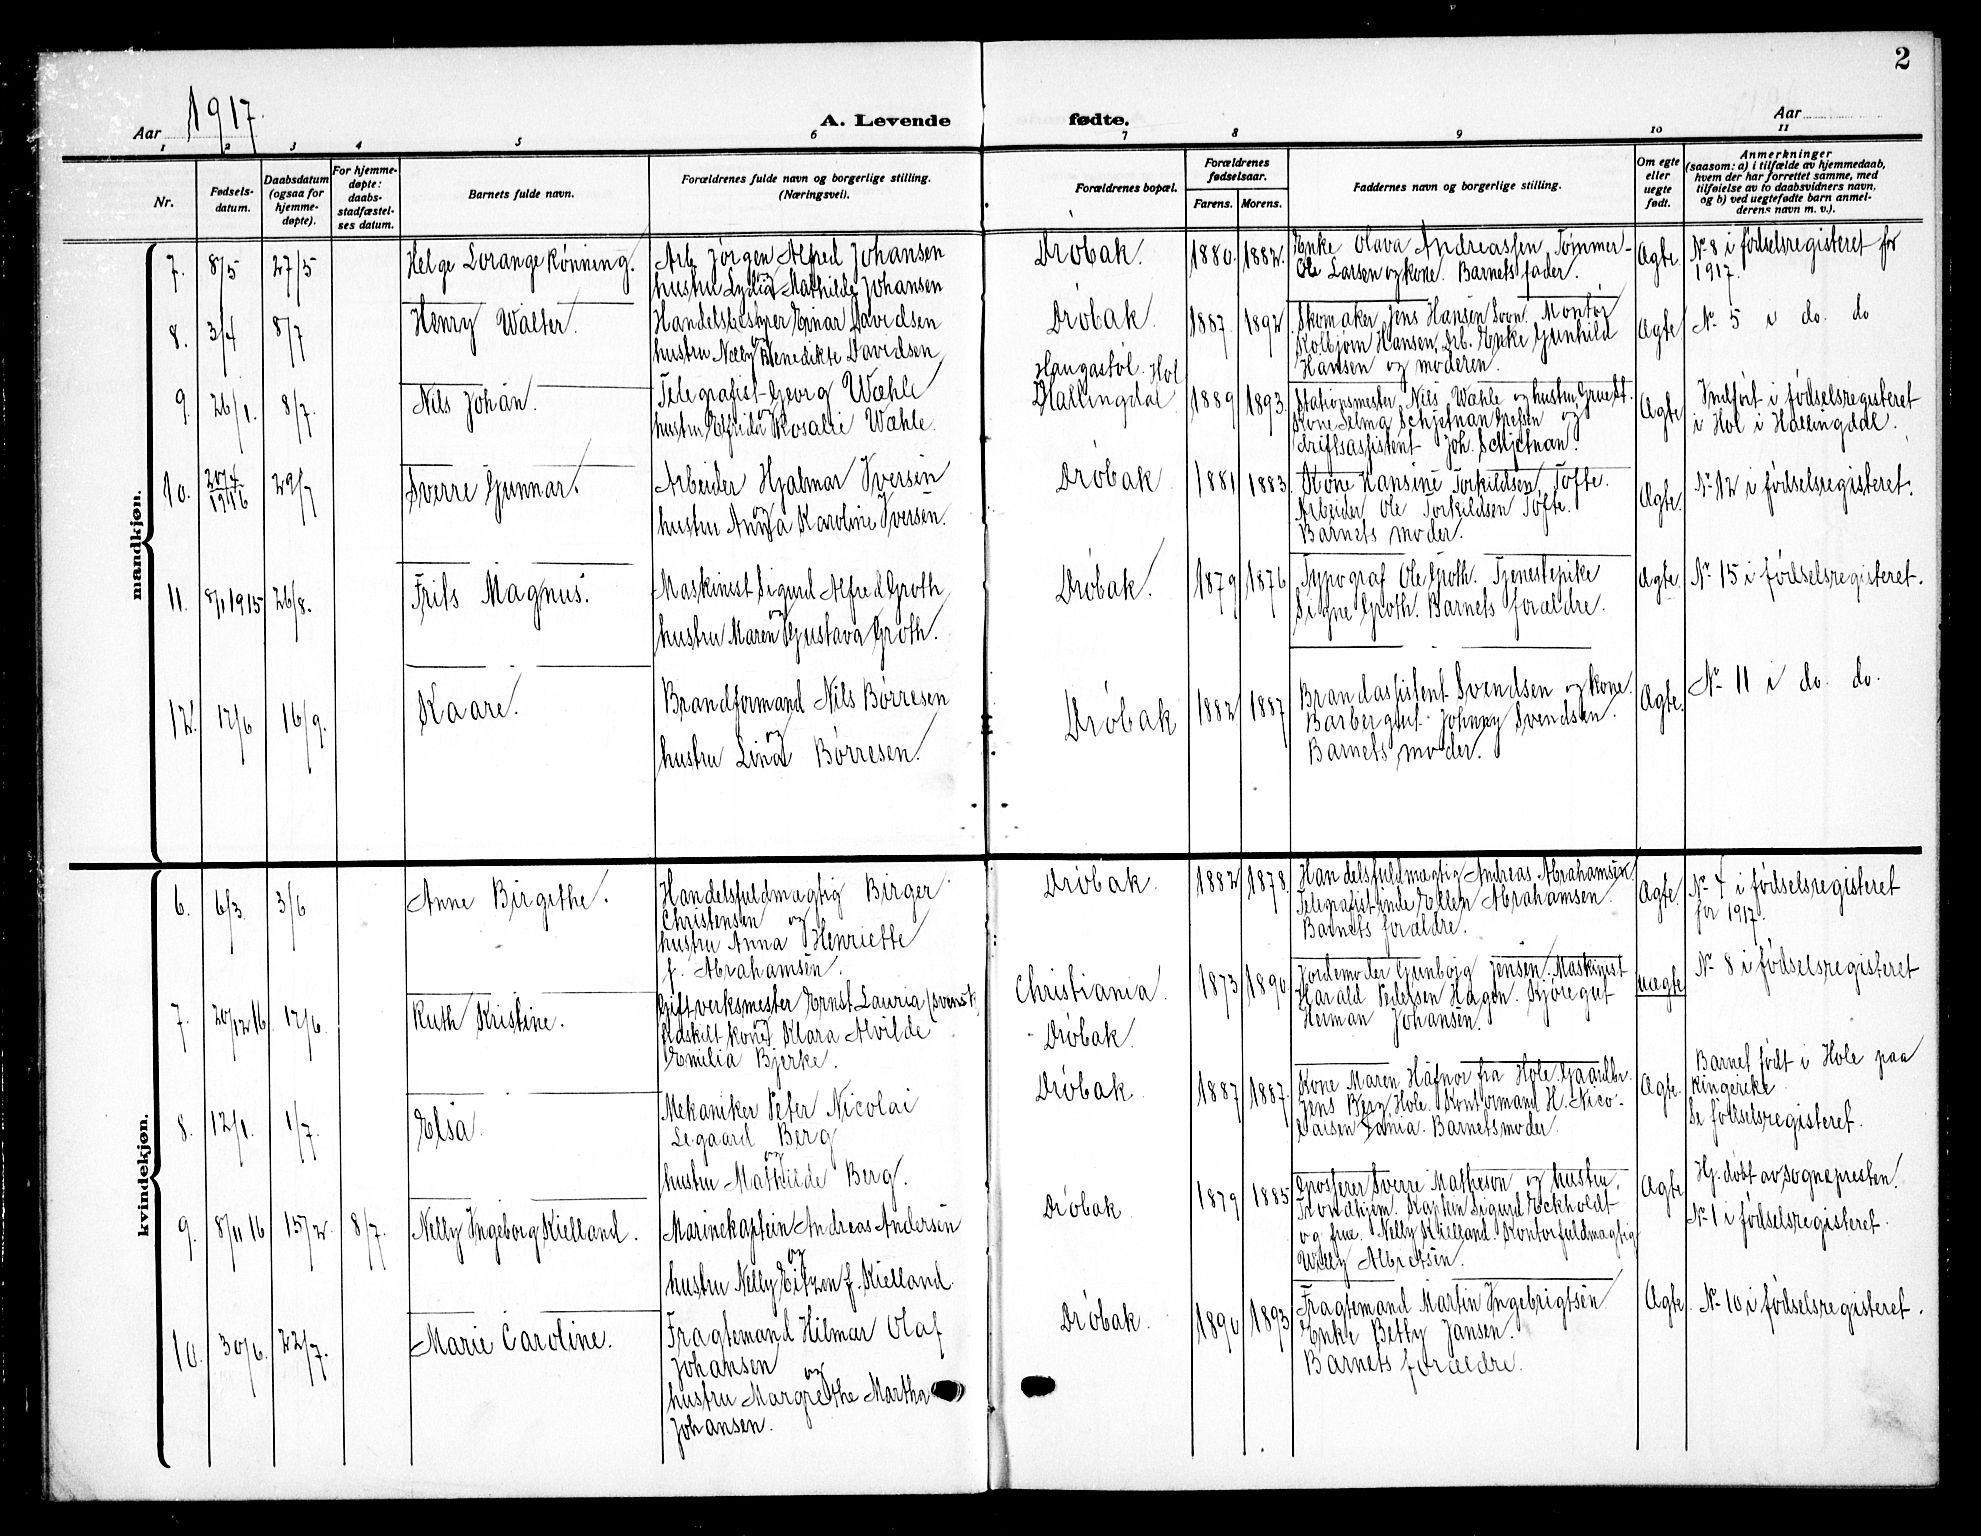 2
Aar 1917.
A. Levende fødte.
Aar
1 2 3 4 5 6 7 8 9 10 11
Nr.
Fødsels-
datum.
Daabsdatum
(ogsaa for
hjemme-
døpte).
For hjemme-
døpte:
daabs-
stadfæstel-
ses datum.
Barnets fulde navn.
Forældrenes fulde navn og borgerlige stilling.
(Næringsvei).
Forældrenes bopæl.
Forældrenes
fødselsaar.
Farens. Morens.
Faddernes navn og borgerlige stilling.
Om egte
eller
uegte
født.
Anmerkninger
(saasom: a) i tilfælde av hjemmedaab,
hvem der har forrettet samme, med
tilføielse av to daabsvidners navn,
og b) ved uegtefødte barn anmel-
derens navn m. v.).
mandkjøn.
7. 8/5 27/5 Helge Lorange Rønning. Arb. Jørgen Alfred Johansen
og
hustru Lydia Mathilde Johansen
Drøbak. 1880. 1882.
Enke Olava Andreassen Tømmer-
Ole Larsen og kone. Barnets fader.
Ægte
No 8 i fødselsregisteret for
1917.
8. 3/4 8/7 Henry Walter. Handelsbestyrer Einar Davidsen
og
hustru Nelly Benedikte Davidsen
Drøbak. 1887. 1892.
Skomaker Jens Hansen Svon. Montør
Kolbjørn Hansen, Drb. Enke Gunhild
Hansen og moderen.
Ægte
No 5 i do. do
9. 26/1. 8/7. Nils Johan. Telegrafist Georg Wæhle
og
hustru Elfrida Rosalie Wæhle.
Haugastøl. Hol
Hallingdal 1889 1893.
Stationsmester Nils Wæhle og hustru
Kone Selma Schjetnan og
driftsassistent Joh. Schjetnan.
Ægte
Indført i fødselsregisteret
i Hol i Hallingdal.
10. 20/4
1916 29/7 Sverre Gunnar. Arbeider Hjalmar Iversen
og
hustru Anna Karoline Iversen.
Drøbak 1881 1883.
Kone Hansine Torkildsen Tofte.
Arbeider Ole Torkildsen Tofte.
Barnets moder.
Ægte.
No 12 i fødselsregisteret.
11. 8/1 1915 26/8. Frits Magnus. Maskinist Sigurd Alfred Groth
og
hustru Maren Gustava Groth.
Drøbak. 1879 1876
Typograf Ole Groth. Tjenestepike
Signe Groth. Barnets forældre.
Ægte.
No 15 i fødselsregisteret.
12. 12/6 16/9. Kaare. Brandformand Nils Børresen
og
hustru Lina Børresen.
Drøbak 1882 1887
Brandassistent Svendsen og kone.
Barbergut Johnny Svendsen.
Barnets moder.
Ægte.
No 11 i do. do.
kvindekjøn.
6. 6/3 3/6 Anne Birgithe. Handelsfuldmægtig Birger
Christensen og
hustru Anna Henriette
f. Abrahamsen.
Drøbak. 1882 1878.
Handelsfuldmægtig Andreas Abrahamsen
Telegrafistinde Ellen Abrahamsen.
Barnets forældre.
Ægte.
No 4 i fødselsregisteret
for 1917.
7. 20/12 16 17/6. Ruth Kristine. Gift verksmester Ernst Lauria (svensk)
Fraskilt kone Klara Alvilde
Emilia Bjerke.
Christiania.
Drøbak. 1873 1890.
Jordemoder Gunbojg Jensen. Maskinist
Harald Pedersen Hagen. Kjøregut
Herman Johansen.
uægte
No 8 i fødselsregisteret
8. 12/1. 1/7. Elsa. Mekaniker Peter Nicolai
Legaard Berg
og
hustru Mathilde Berg.
Drøbak 1887 1887.
Kone Maren Hafnor fra Hole. Gaardbr.
Jens Berg Hole. Kontormand H. Nico-
laisen Barnets moder.
Ægte.
Barnet født i Hole paa
Ringerike.
Se fødselsregisteret.
9. 8/11 16 15/2. 8/7. Nelly Ingeborg Kielland. Marinekaptein Andreas Andersen
og
hustru Nelly Eitzen f. Kielland.
Drøbak 1879 1885
Grosserer Sverre Matheson og hustru,
Trondhjem. Kaptein Sigurd Eckholdt
og frue. Nelly Kielland. Kontorfuldmægtig
Willy Albretsen.
Ægte
Hj. døbt av sognepresten.
No 1 i fødselsregisteret.
10. 30/6. 22/7. Marie Caroline. Fragtemand Hilmar Olaf
Johansen og
hustru Margrethe Martha
Johansen.
Drøbak. 1890 1893.
Fragtemand Martin Ingebrigtsen
Enke Betty Jansen.
Barnets forældre.
Ægte
No 10 i fødselsregisteret.